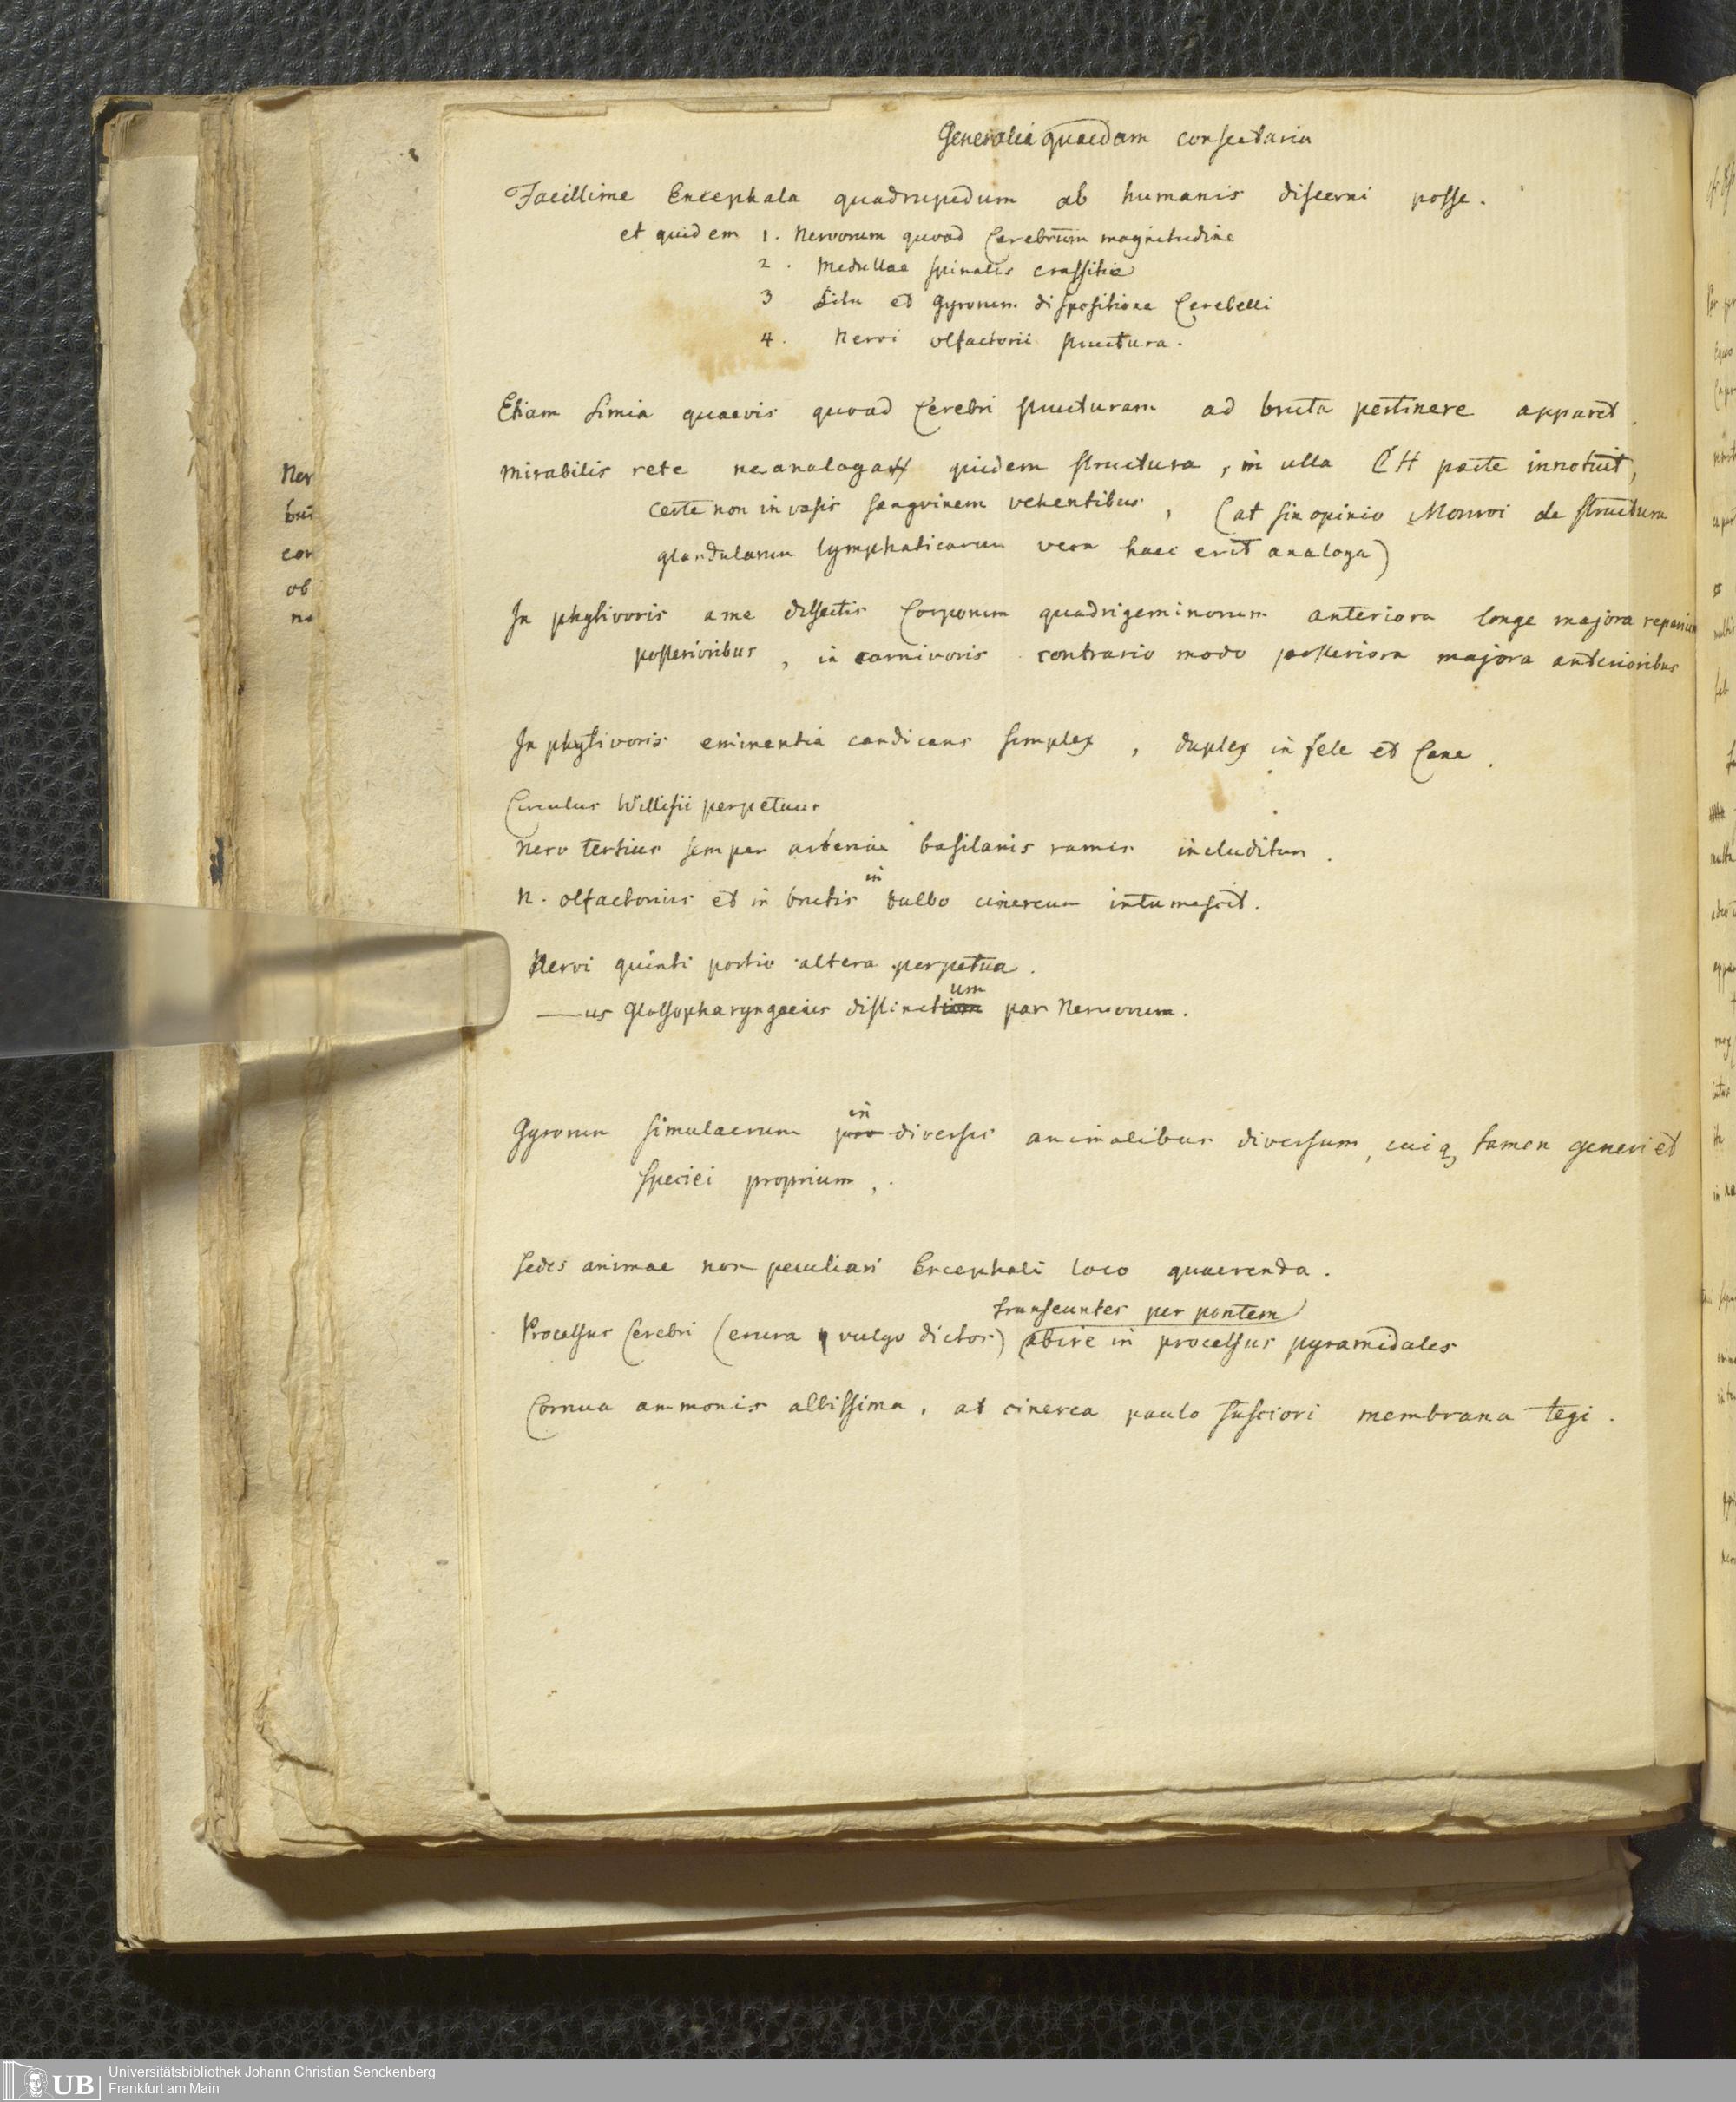 Generalia quaedam consectaria
Facillime Encephala quadrupedum ab humanis discerni posse.
et quidem 1. Nervorum quoad Cerebrum magnitudine
2. Medullae spinalis crassitie
3 Situ et Gyrorum dispositione Cerebelli
4. Nervi olfactorii structura.
Etiam Simia quaevis quoad Cerebri structuram ad bruta pertinere apparet.
Mirabilis rete ne analoga quidem structura, in ulla CH parte innotuit,
certe non in vasis sanguinem vehentibus, (at sin opinio Monroi de structura
glandularum lymphaticarum vera haec erit analoga)
In phytivoris a me dissectis Corporum quadrigeminorum anteriora longe majora
posterioribus, in carnivoris contrario modo posteriora majora anterioribus
In phytivoris eminentia candicans simplex, duplex in fele et Cane.
Circulus Willisii perpetuus
Nerv tertius semper arteriae basilaris ramis includitur.
N. olfactorius et in brutis in bulbo cinereum intumescit.
Nervi quinti portio altera perpetua.
—us Glossopharyngaeus distinctum par Nervorum.
Gyrorum simulacrum in diversis animalibus diversum, cuiq tamen generi et
speciei proprium,.
Sedes animae non peculiari Encephali loco quaerenda.
transeuntes per pontem
Processus Cerebri (crura vulgo dictos) abire in processus pyramidales
Cornua ammonis albissima, at cinerea paulo fusciori membrana tegi.
Ner
con
ob
Universitätsbibliothek Johann Christian Senckenberg
UB
Frankfurt am Main